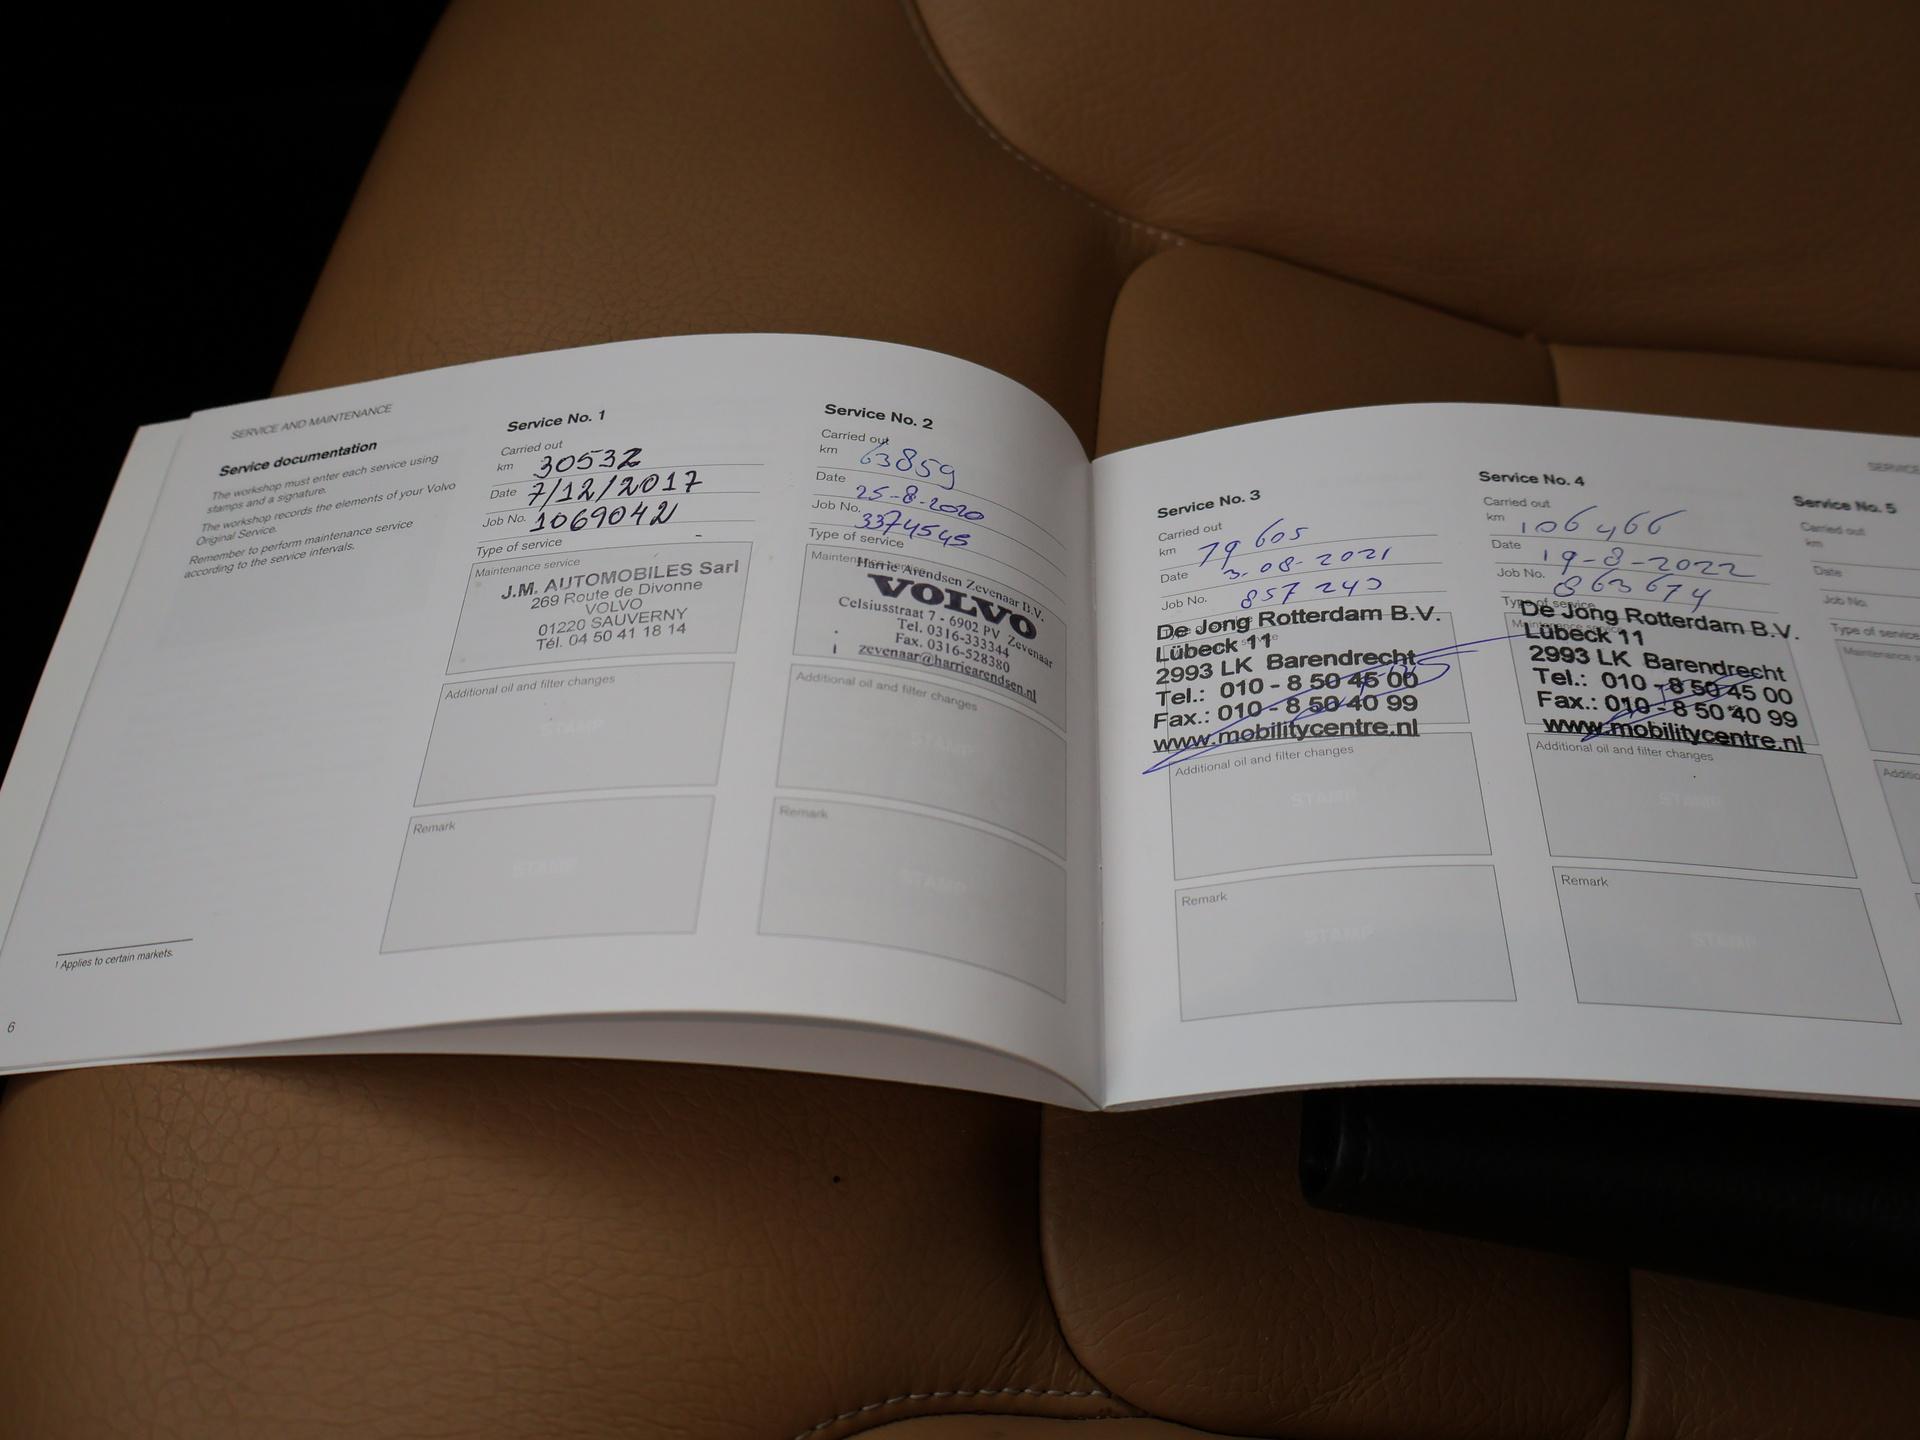 SERVICE AND MAINTENANCE
Service documentation
The workshop must enter each service using
stamps and a signature.
The workshop records the elements of your Volvo
Original Service.
Remember to perform maintenance service
according to the service intervals.
1 Applies to certain markets.
6
Service No. 1
Carried out
km 30532
Date 7/12/2017
Job No. 1069042
Type of service
Maintenance service
J.M. AUTOMOBILES Sarl
269 Route de Divonne
VOLVO
01220 SAUVERNY
Tél. 04 50 41 18 14
Additional oil and filter changes
STAMP
Remark
STAMP
Service No. 2
Carried out
km 63859
Date 25-8-2020
Job No. 3374545
Type of service
Maintenance service
Harrie Arendsen Zevenaar B.V.
VOLVO
Celsiusstraat 7 - 6902 PV Zevenaar
Tel. 0316-333344
Fax. 0316-528380
zevenaar@harriearendsen.nl
Additional oil and filter changes
STAMP
Remark
STAMP
Service No. 3
Carried out
km 79605
Date 3-08-2021
Job No. 857243
De Jong Rotterdam B.V.
Lübeck 11
2993 LK Barendrecht
Tel.: 010 - 8 50 45 00
Fax.: 010 - 8 50 40 99
www.mobilitycentre.nl
Additional oil and filter changes
STAMP
Remark
STAMP
Service No. 4
Carried out
km 106466
Date 19-8-2022
Job No. 863674
Type of service
De Jong Rotterdam B.V.
Lübeck 11
2993 LK Barendrecht
Tel.: 010 - 8 50 45 00
Fax.: 010 - 8 50 40 99
www.mobilitycentre.nl
Additional oil and filter changes
STAMP
Remark
STAMP
Service No. 5
Carried out
km
Date
Job No.
Type of service
Maintenance